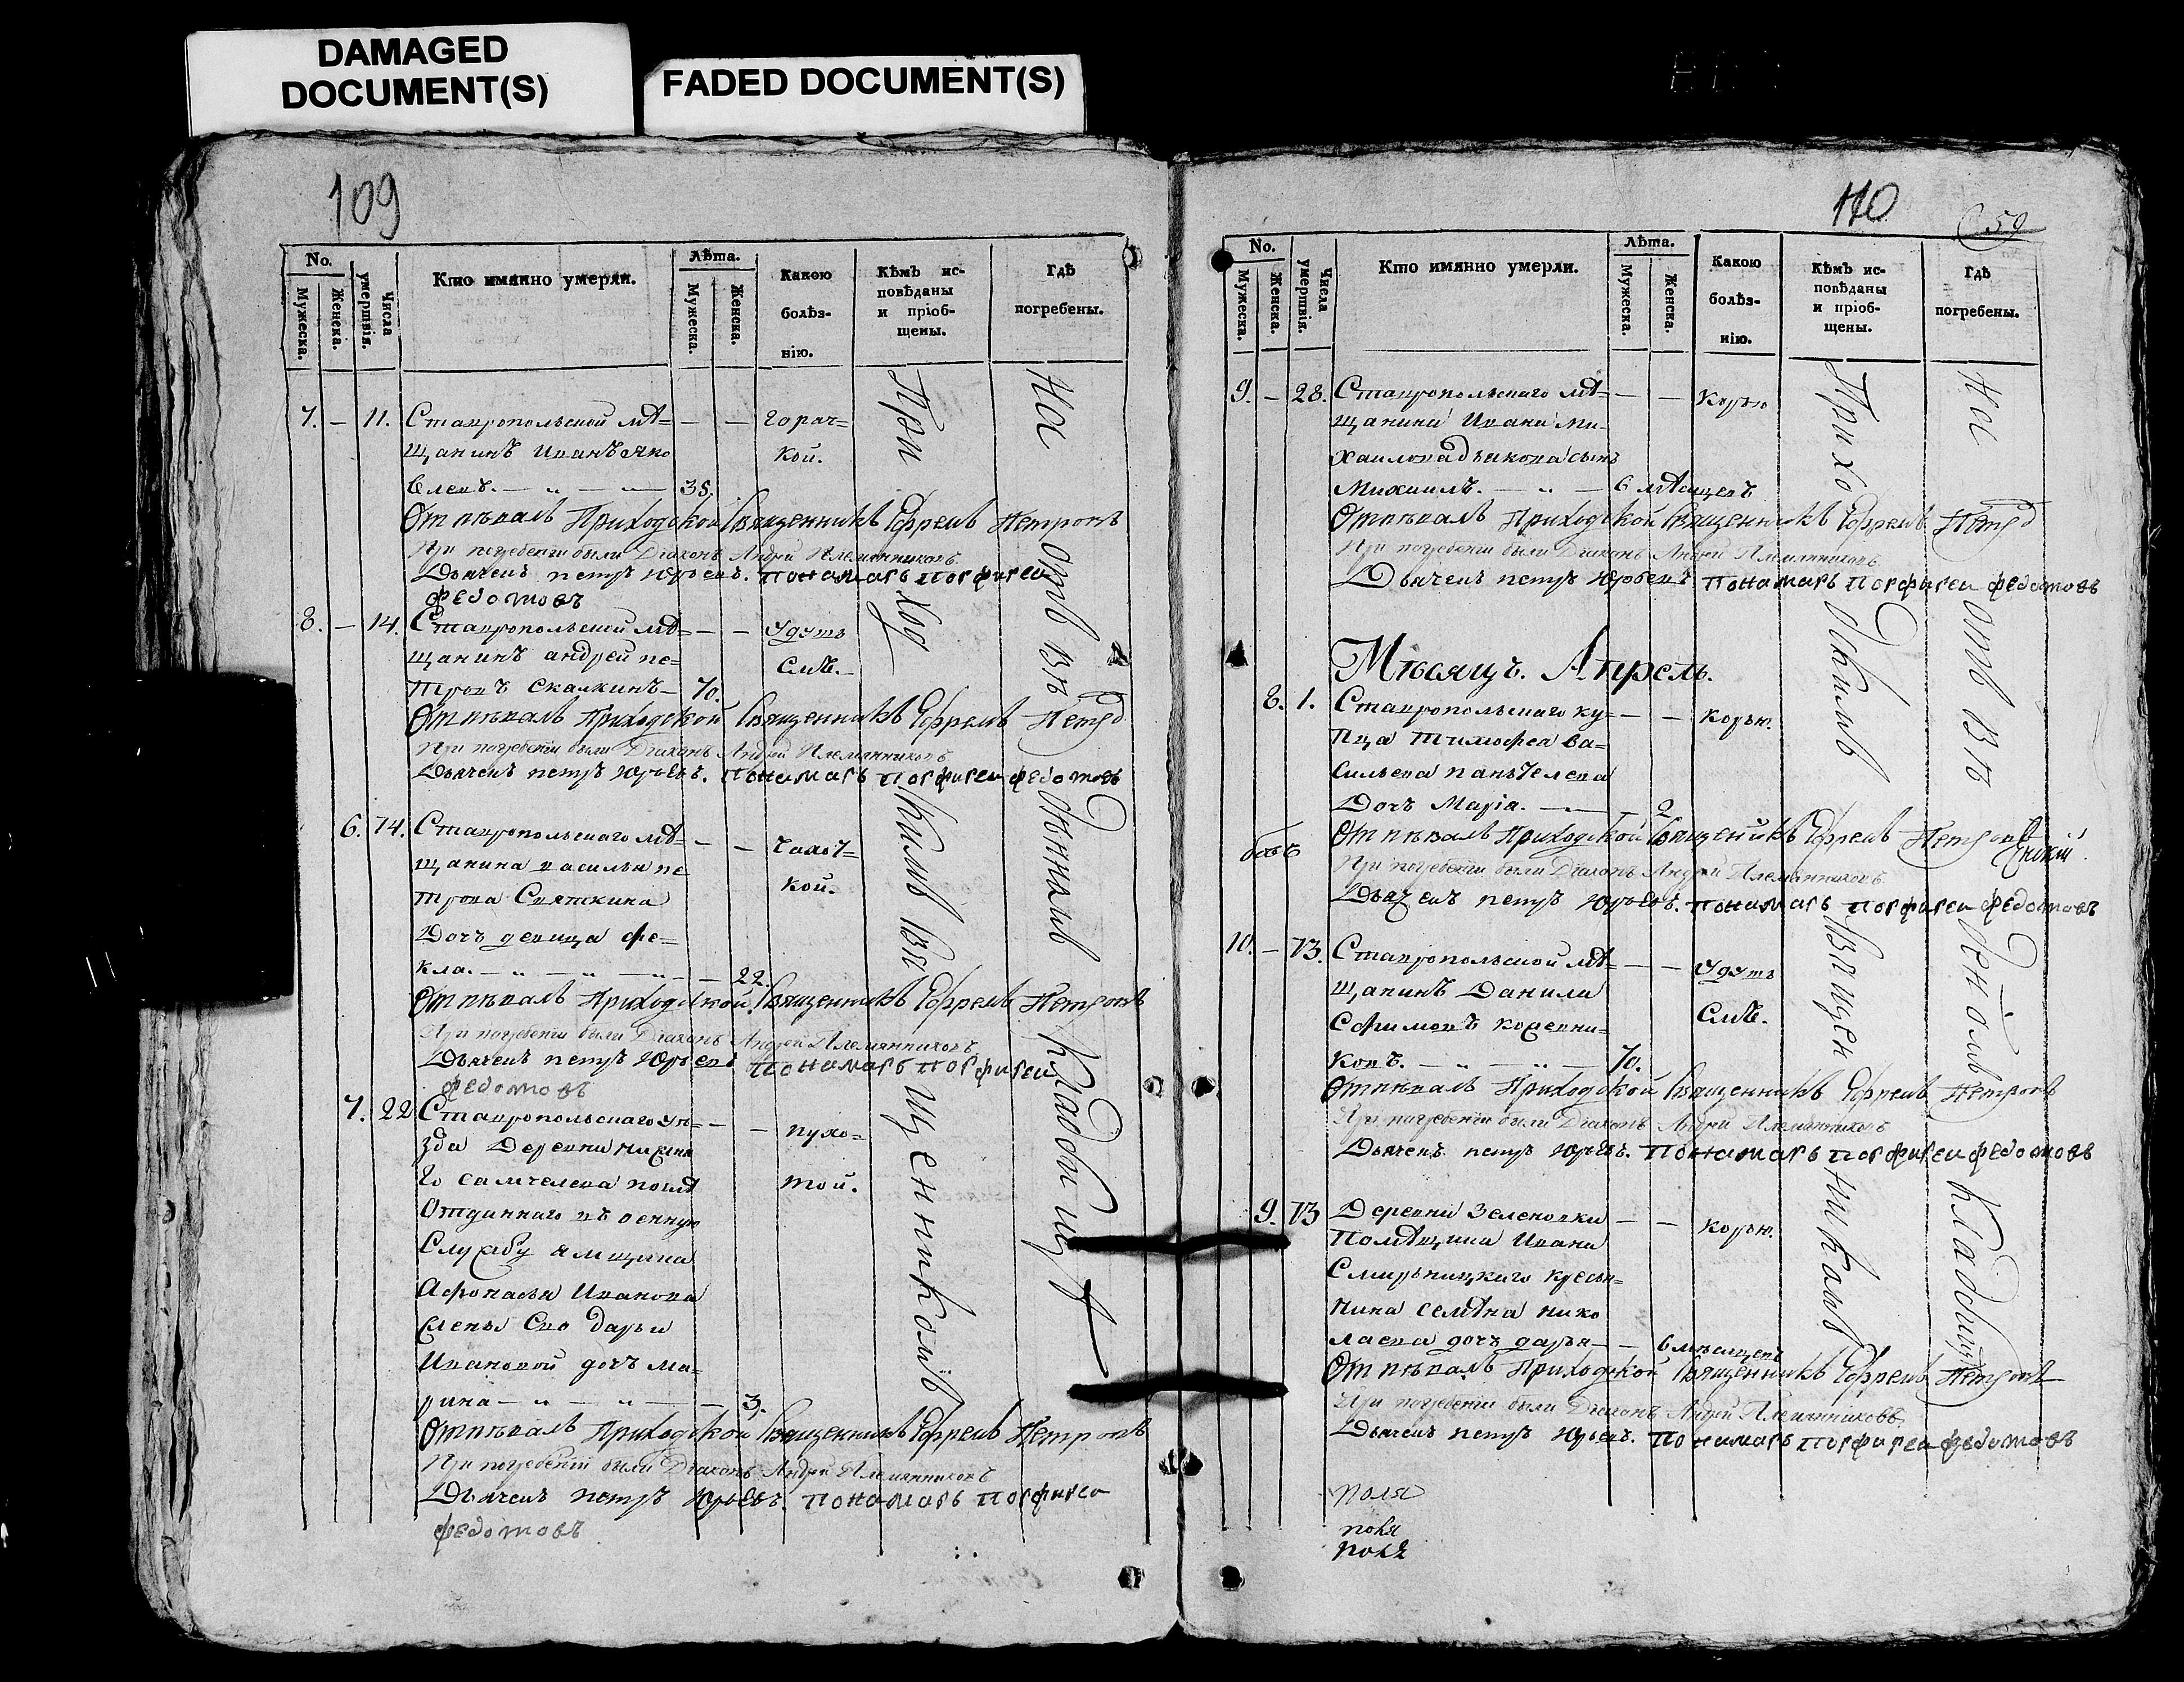 DAMAGED
DOCUMENT(S)
FADED DOCUMENT(S)
109
No.
Мужеска.
Женска.
Числа
умертвія.
Кто имянно умерли.
Лѣта.
Мужеска.
Женска.
Какою
болѣз-
нію.
Кѣмъ ис-
повѣданы
и пріоб-
щены.
Гдѣ
погребены.
7. — 11. Ставропольской мѣ= — — горяч=
щанинъ Иванъ Яко кой.
влевъ. — „ — — 35.
Отпѣвалъ Приходской Священникъ Ефремъ Петровъ
При погребеніи были Діаконъ Андрей Племянниковъ
Дьячекъ петръ Юрьевъ. Понамарь Порфирей
федотовъ
8. — 14. Ставропольской мѣ= — — Удушъ
щанинъ андрей пе= емъ.
тровъ скалкинъ — 70.
Отпѣвалъ Приходской Священникъ Ефремъ Петро
При погребеніи были Діаконъ Андрей Племянниковъ
Дьячекъ петръ Юрьевъ. Понамарь Порфирей федотовъ
6. 14. Ставропольскаго мѣ= — — Чахот=
щанина василья пе кой.
трова Святкина
Дочь девица фе=
кла. — „ — „ — „ — — 22.
Отпѣвалъ Приходской Священникъ Ефремъ Петровъ
При погребеніи были Діаконъ Андрей Племянниковъ
Дьячекъ петръ Юрьевъ Понамарь Порфирей
федотовъ
7. 22 Ставропольскаго уѣ= — — пухо=
зда Деревни
той.
Отданнаго въ оенную
Службу ямщика
Афонасья Иванова
жены Ево Дарьи
Ивановой дочь Ма=
рина — „ — „ — — 3.
Отпѣвалъ Приходской Священникъ Ефремъ Петровъ
При погребеніи были Діаконъ Андрей Племянниковъ
Дьячекъ петръ Юрьевъ. Понамарь Порфирей
федотовъ
Приходскимъ Священникомъ
На отведенномъ Кладбищѣ
110
59
No.
Мужеска.
Женска.
Числа
умертвія.
Кто имянно умерли.
Лѣта.
Мужеска.
Женска.
Какою
болѣз-
нію.
Кѣмъ ис-
повѣданы
и пріоб-
щены.
Гдѣ
погребены.
9. — 28. Ставропольскаго мѣ= — — Корью
щанина Ивана Ми-
хайлова сынъ
Михаилъ. — „ — 6 мѣсяцевъ
Отпѣвалъ Приходской Священникъ Ефремъ Петро
При погребеніи были Діаконъ Андрей Племянниковъ
Дьячекъ петръ Юрьевъ Понамарь Порфирей федотовъ
Мѣсяцъ. Апрель.
8. 1. Ставропольскаго ку= — — Корью.
пца тимофея ва=
сильева пантелева
Дочь Марія. — — 2
Отпѣвалъ Приходской Священникъ Ефремъ Петровъ
При погребеніи были Діаконъ Андрей Племянниковъ
Дьячекъ петръ Юрьевъ. Понамарь Порфирей федотовъ
10. — 13. Ставропольской мѣ= — — Удушъ
щанинъ Данила емъ.
Ефимовъ кожевни=
ковъ. — „ — „ — 70.
Отпѣвалъ Приходской Священникъ Ефремъ Петровъ
При погребеніи были Діаконъ Андрей Племянниковъ
Дьячекъ петръ Юрьевъ. Понамарь Порфирей федотовъ
9. 13 Деревни Зеленовки — — Корью.
Помѣщика Ивана
Смирницкаго кресья=
нина семѣна нико
лаева дочь дарья — — 6 мѣсяцевъ
Отпѣвалъ Приходской Священникъ Ефремъ Петровъ
При погребеніи были Діаконъ Андрей Племянниковъ
Дьячекъ петръ Юрьевъ. Понамарь Порфирей федотовъ
Приходскимъ Священникомъ
На отведенномъ Кладбищѣ